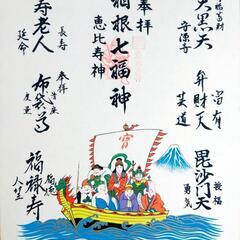 大黒天
弁財天
富有
芸道
毘沙門天
授福
勇気
奉拝
箱根七福神
恵比寿神
寿老人
長寿
延命
奉拝
布袋尊
福禄寿
人望